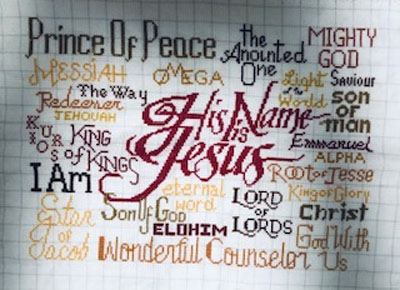 Prince Of Peace
the
Anointed
One
MIGHTY
GOD
MESSIAH
OMEGA
Light
of the
World
Saviour
The Way
Redeemer
JEHOVAH
His Name
is
Jesus
son
of
man
Emmanuel
ALPHA
KURIOS
KING
of KINGS
Root of Jesse
I AM
eternal
word
LORD
of
LORDS
King of Glory
Christ
Star
of
Jacob
Son Of God
ELOHIM
God With
Us
Wonderful Counselor